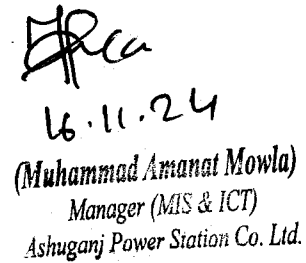 16.11.24
(Muhammad Amanat Mowla)
Manager (MIS & ICT)
Ashuganj Power Station Co. Ltd.